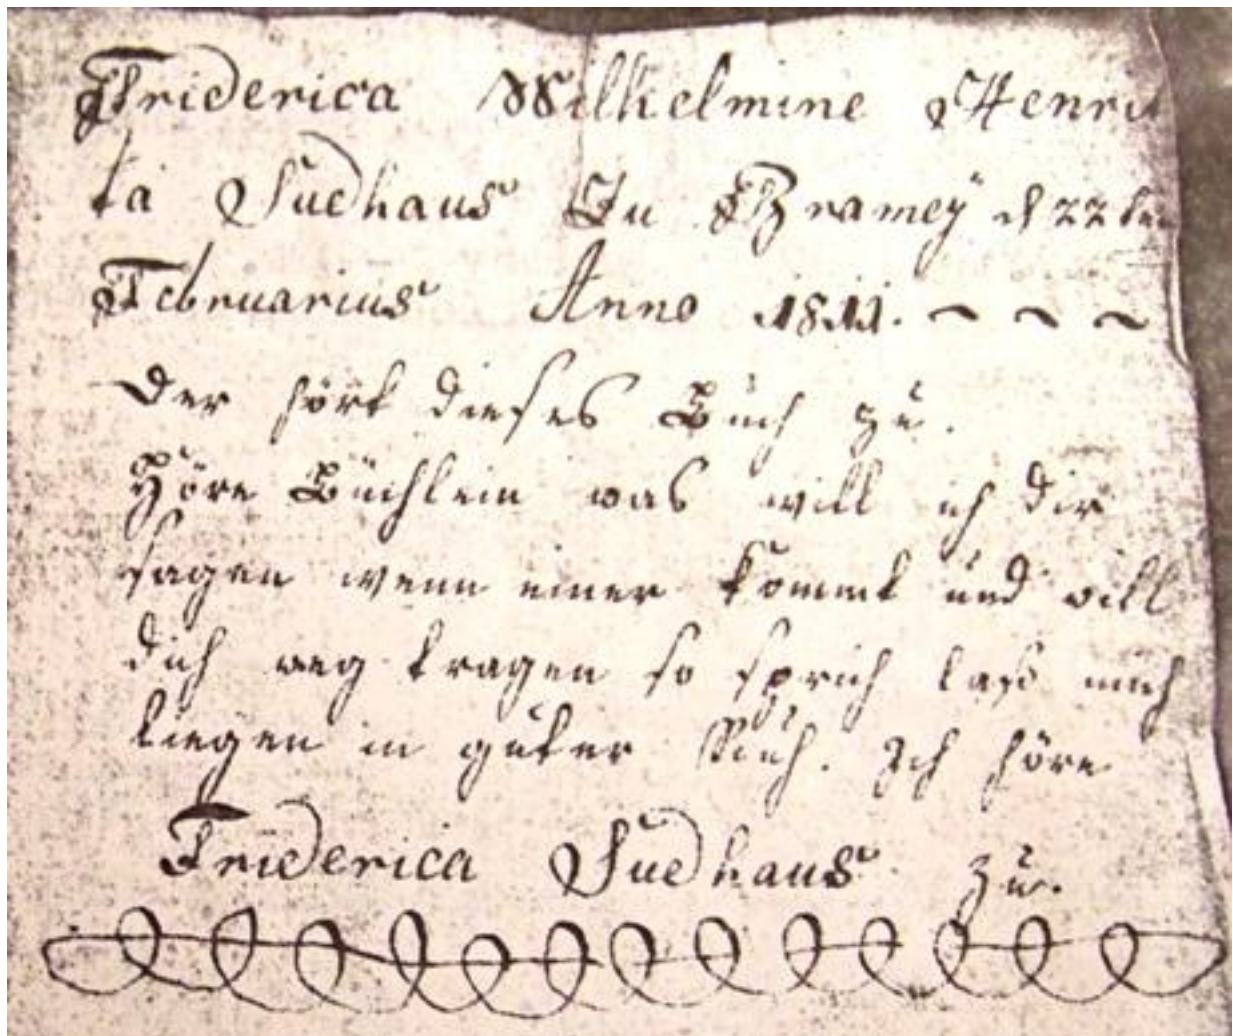 Friderica Wilhelmine Henri
ta Sudhaus Zu Bramey d 22 ten
Februarius Anno 1811. ~ ~ ~
Der hört dieses Buch zu.
Höre Büchlein was will ich dir
sagen wenn einer kommt und will
dich weg tragen so sprich lass mich
liegen in guter Ruh. Ich höre
Friderica Sudhaus zu.